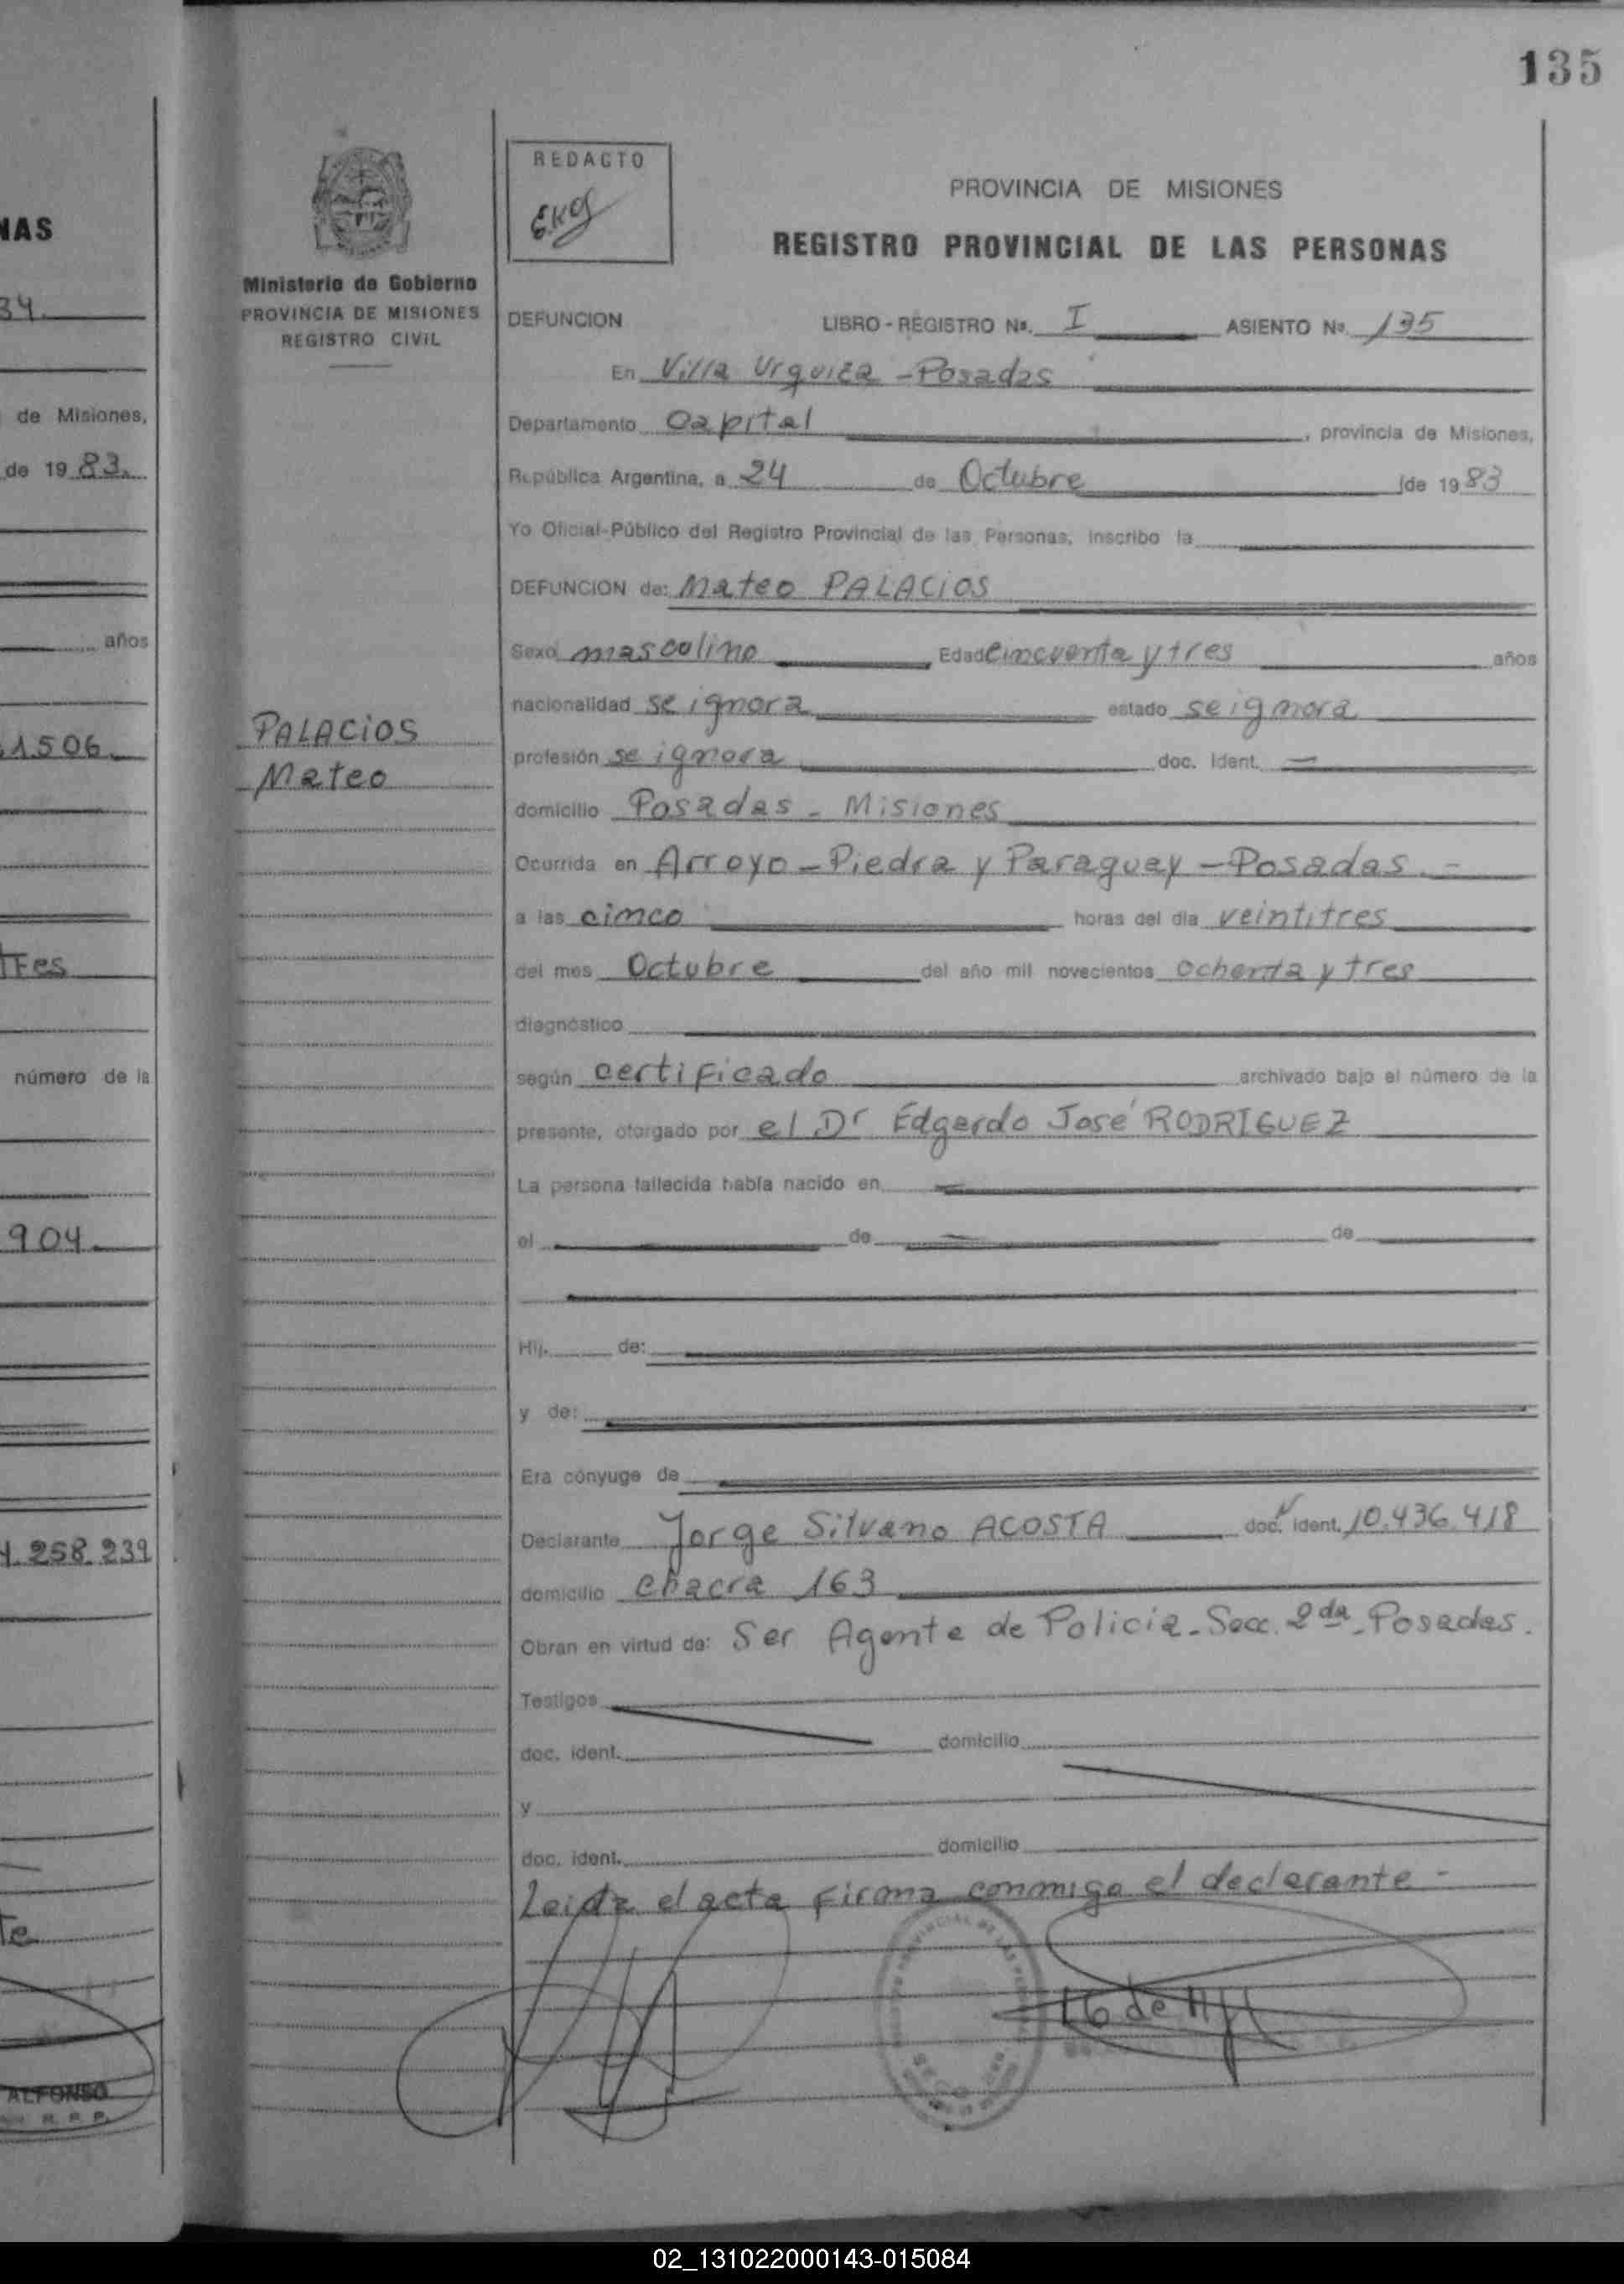 135
NAS
34
de Misiones,
de 19 83.
años
1506
TFes
número de la
904
258.239
te
ALFONSO
R. P. P.
Ministerio de Gobierno
PROVINCIA DE MISIONES
REGISTRO CIVIL
PALACIOS
Mateo
REDACTO
EKG
PROVINCIA DE MISIONES
REGISTRO PROVINCIAL DE LAS PERSONAS
DEFUNCION LIBRO - REGISTRO Nº. I ASIENTO Nº. 135
En Villa Urquiza - Posadas
Departamento Capital, provincia de Misiones,
República Argentina, a 24 de Octubre de 19 83
Yo Oficial-Público del Registro Provincial de las Personas, inscribo la
DEFUNCION de: Mateo PALACIOS
Sexo masculino Edad cincuenta y tres años
nacionalidad se ignora estado se ignora
profesión se ignora doc. ident. —
domicilio Posadas - Misiones
Ocurrida en Arroyo - Piedra y Paraguay - Posadas. -
a las cinco horas del día veintitres
del mes Octubre del año mil novecientos ochenta y tres
diagnóstico
según certificado archivado bajo el número de la
presente, otorgado por el Dr Edgardo José RODRIGUEZ
La persona fallecida había nacido en
el de de
Hij. de:
y de:
Era cónyuge de
Declarante Jorge Silvano ACOSTA doc. ident. 10.436.418
domicilio chacra 163
Obran en virtud de: Ser Agente de Policia - Secc. 2da - Posadas.
Testigos
doc. ident. domicilio
y
doc. ident. domicilio
Leida el acta firma conmigo el declarante -
02_131022000143-015084